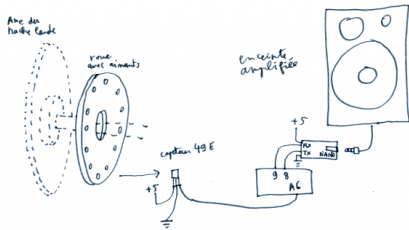 Axe du
hache lande
roue
avec aimants
enceinte
amplifiée
capteur 49E
+5
+5
RX
TX
NANO
9 8
A6